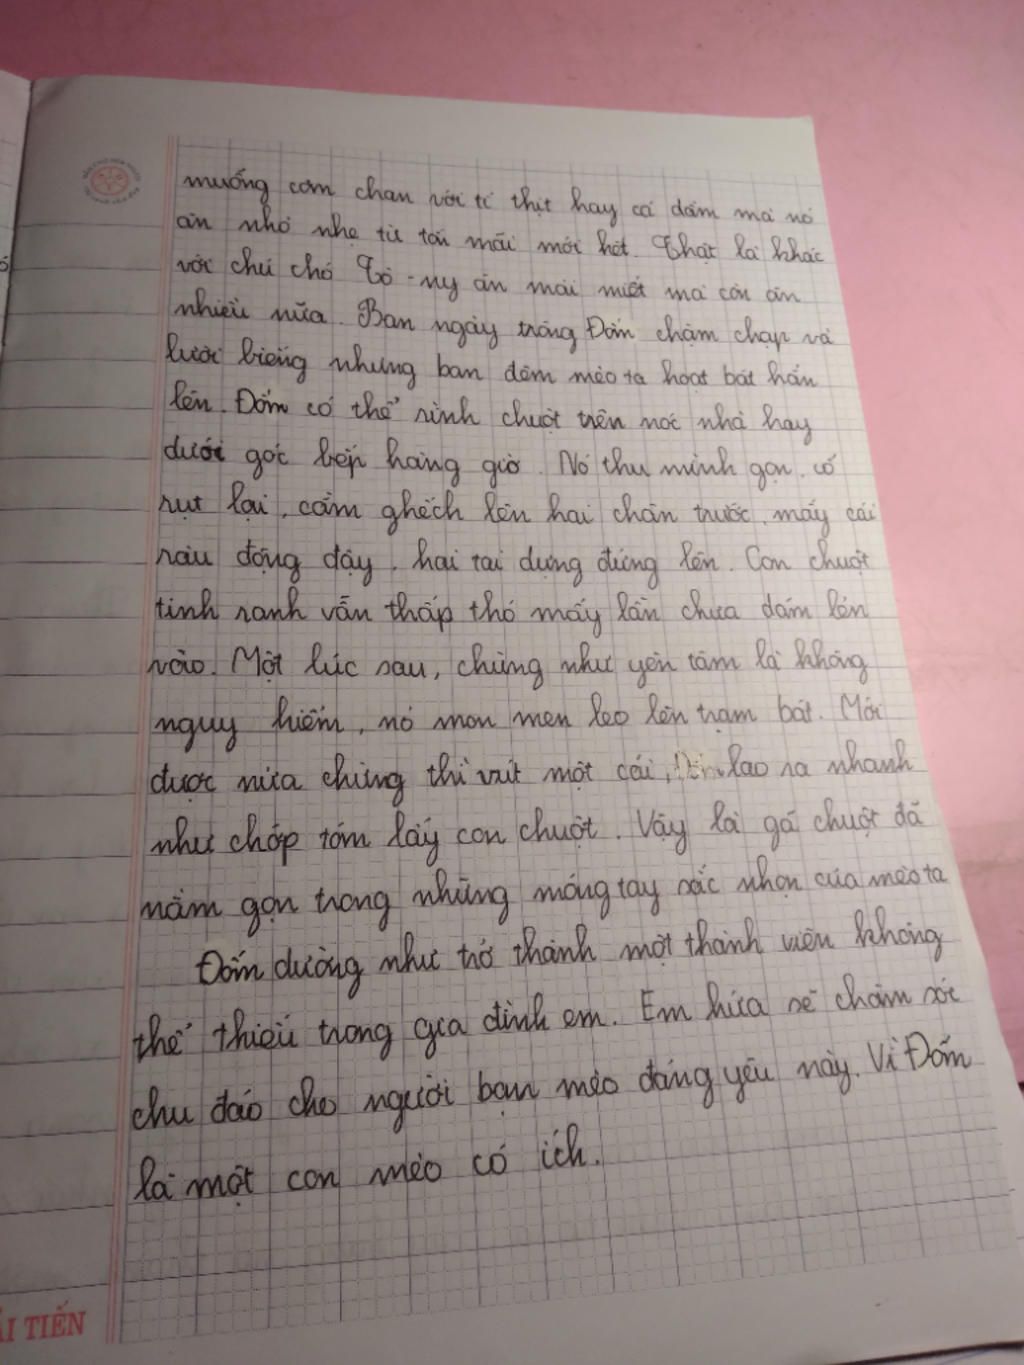 muống cơm chan với tí thịt hay cá dầm mà nó
ăn nhỏ nhẹ từ tốn mãi mới hết. Thật là khác
với chú chó Tô-ny ăn mải miết mà còn ăn
nhiều nữa. Ban ngày trông Đốm chậm chạp và
lười biếng nhưng ban đêm mèo ta hoạt bát hẳn
lên. Đốm có thể rình chuột trên nóc nhà hay
dưới góc bếp hàng giờ. Nó thu mình gọn, cổ
rụt lại, cằm ghếch lên hai chân trước, mấy cái
râu động đậy, hai tai dựng đứng lên. Con chuột
tinh ranh vẫn thấp thó mấy lần chưa dám lẻn
vào. Một lúc sau, chừng như yên tâm là không
nguy hiểm, nó mon men leo lên trạm bát. Mới
được nửa chừng thì vút một cái, Đốm lao ra nhanh
như chớp tóm lấy con chuột. Vậy là gã chuột đã
nằm gọn trong những móng tay sắc nhọn của mèo ta
Đốm dường như trở thành một thành viên không
thể thiếu trong gia đình em. Em hứa sẽ chăm sóc
chu đáo cho người bạn mèo đáng yêu này. Vì Đốm
là một con mèo có ích.
ẢI TIẾN